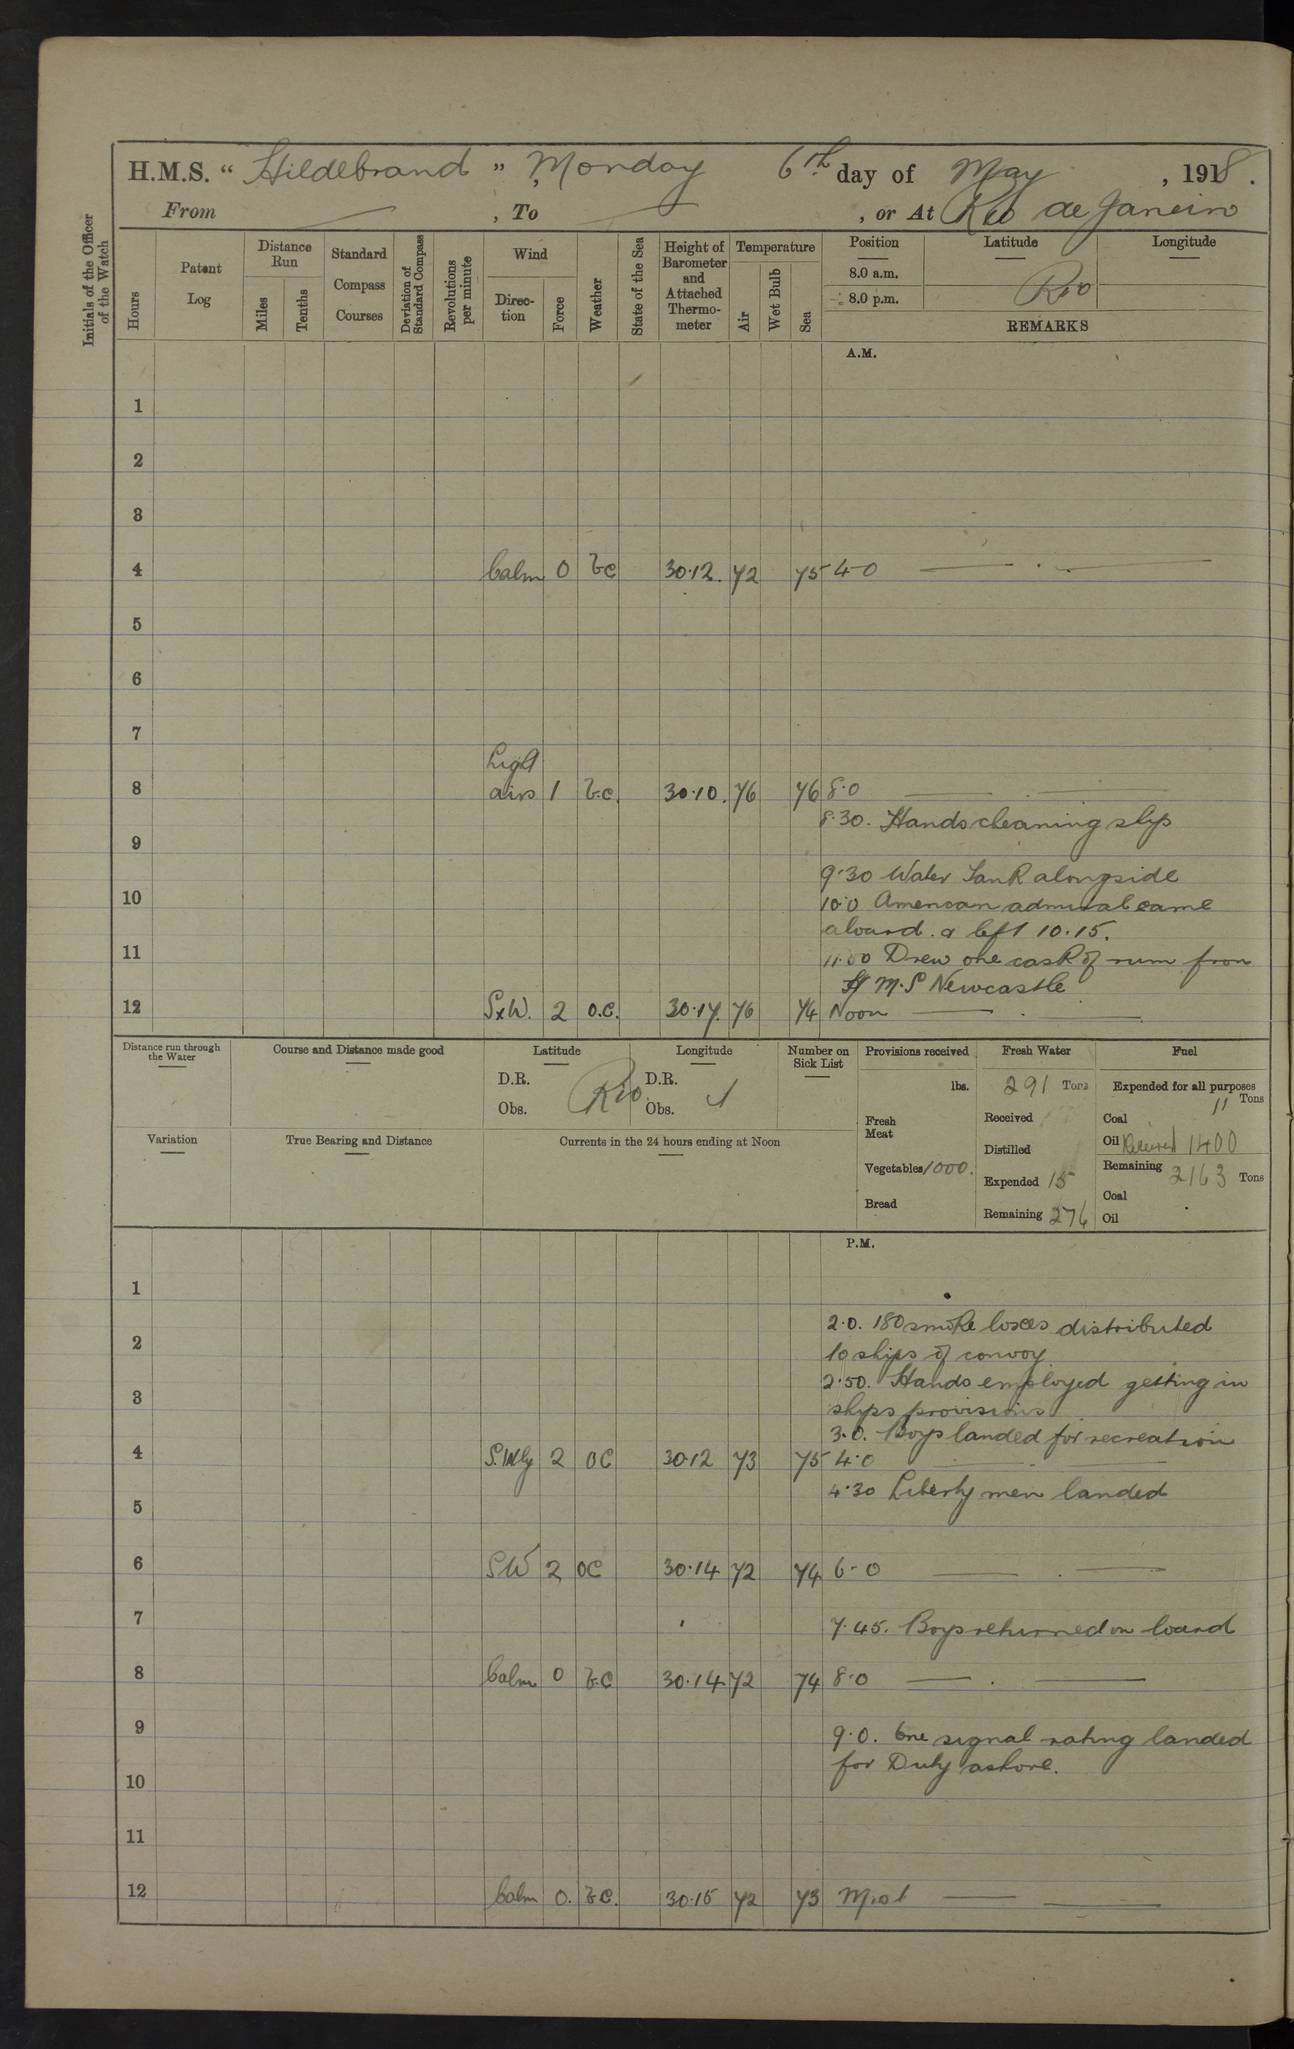 H.M.S. " Hildebrand ", Monday 6th day of May , 1918.
From — , To — , or At Rio de Janeiro
Initials of the Officer of the Watch
Hours
Patent Log
Distance Run
Miles
Tenths
Standard Compass Courses
Deviation of Standard Compass
Revolutions per minute
Wind
Direc- tion
Force
Weather
State of the Sea
Height of Barometer and Attached Thermo- meter
Temperature
Air
Wet Bulb
Sea
Position
Latitude
Longitude
8.0 a.m.
8.0 p.m.
Rio
REMARKS
A.M.
1
2
3
4 Calm 0 b.c 30.12. 72 75 4-0 — . —
5
6
7
Light
8 airs 1 b.c. 30.10. 76 76 8.0 — . —
8.30. Hands cleaning ship
9
9.30 Water Tank alongside
10 10.0 American admiral came
aboard. & left 10.15.
11 11.00 Drew one cask of rum from
H M.S Newcastle
12 SxW. 2 o.c. 30.17. 76 74 Noon — . —
Distance run through the Water
Course and Distance made good
Latitude
D.R.
Obs.
Rio
Longitude
D.R.
Obs.
Number on Sick List
Provisions received
lbs.
Fresh Meat
Vegetables 1000.
Bread
Fresh Water
291 Tons
Received
Distilled
Expended 15
Remaining 276
Fuel
Expended for all purposes
11 Tons
Coal
Oil Received 1400
Remaining 2163 Tons
Coal
Oil
Variation
True Bearing and Distance
Currents in the 24 hours ending at Noon
P.M.
1
2.0. 180 smoke boxes distributed
2 to ships of convoy
2.50. Hands employed getting in
3 ships provisions
3.0. Boys landed for recreation
4 S.Wly 2 OC 30.12 73 75 4.0 — . —
4.30 Liberty men landed
5
6 SW 2 OC 30.14 72 74 6-0 — . —
7 7.45. Boys returned on board
8 Calm 0 b.c 30.14 72 74 8.0 — . —
9 9.0. One signal rating landed
for Duty ashore.
10
11
12 Calm 0. b.c. 30.15 72 73 M.ot — —